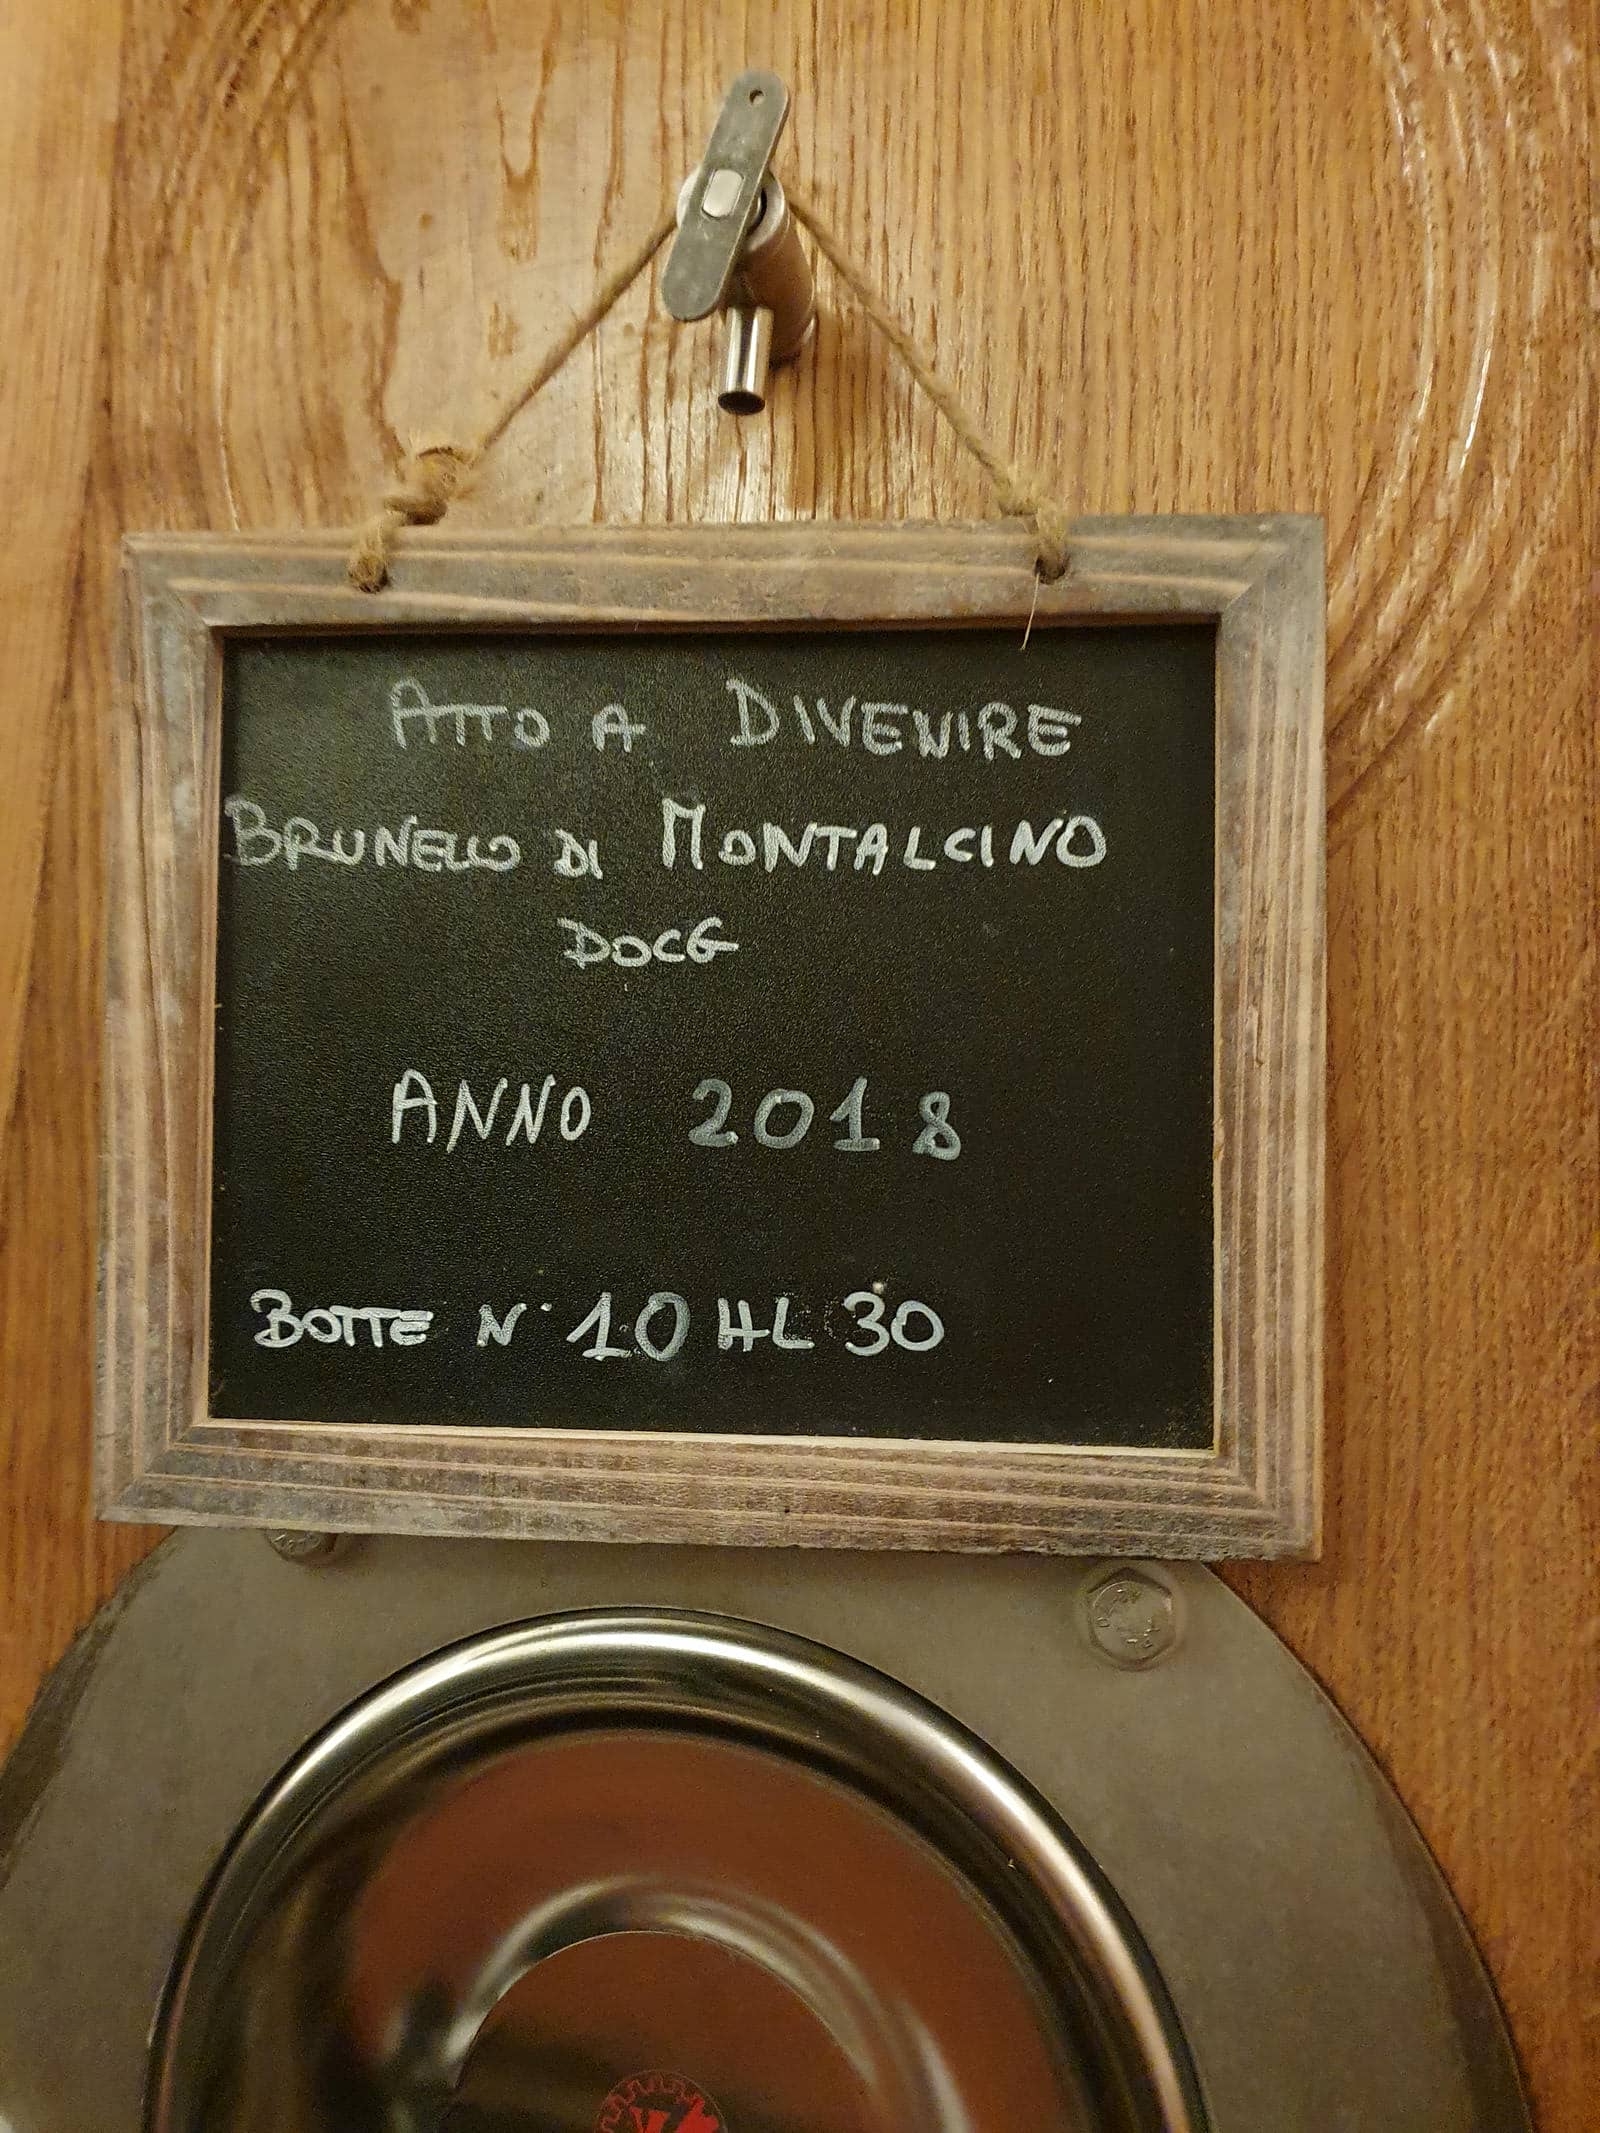 ATTO A DIVENIRE
BRUNELLO DI MONTALCINO
DOCG
ANNO 2018
BOTTE N° 10 HL 30